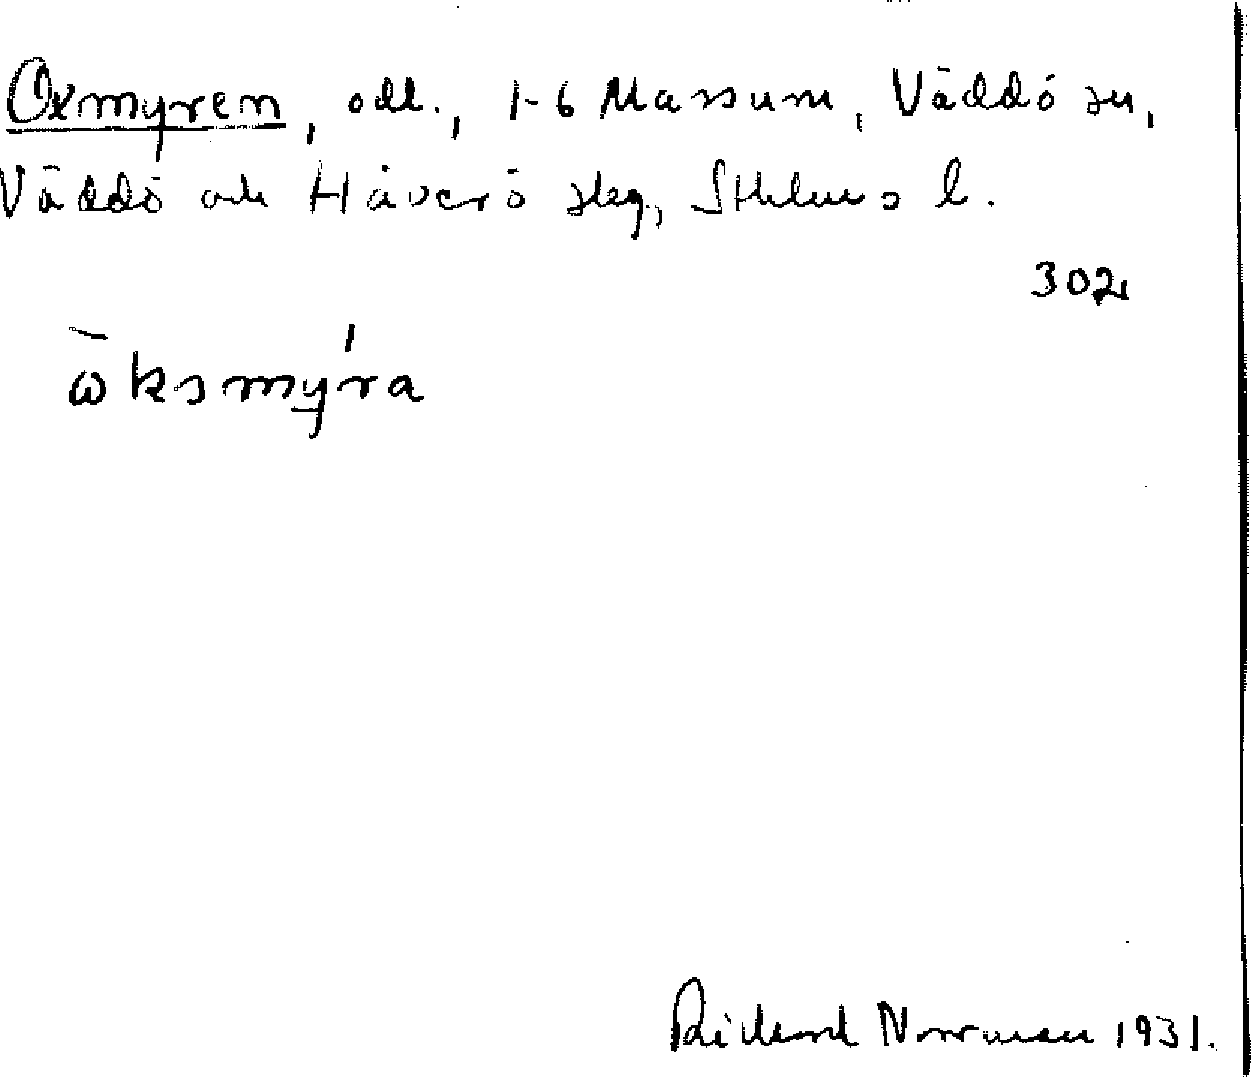 Oxmyren, odl., 1-6 Massum, Väddö sn,
Väddö och Häverö skg, Sthlms l.
302
ὼksmy̌ra
Rickard Norrman 1931.